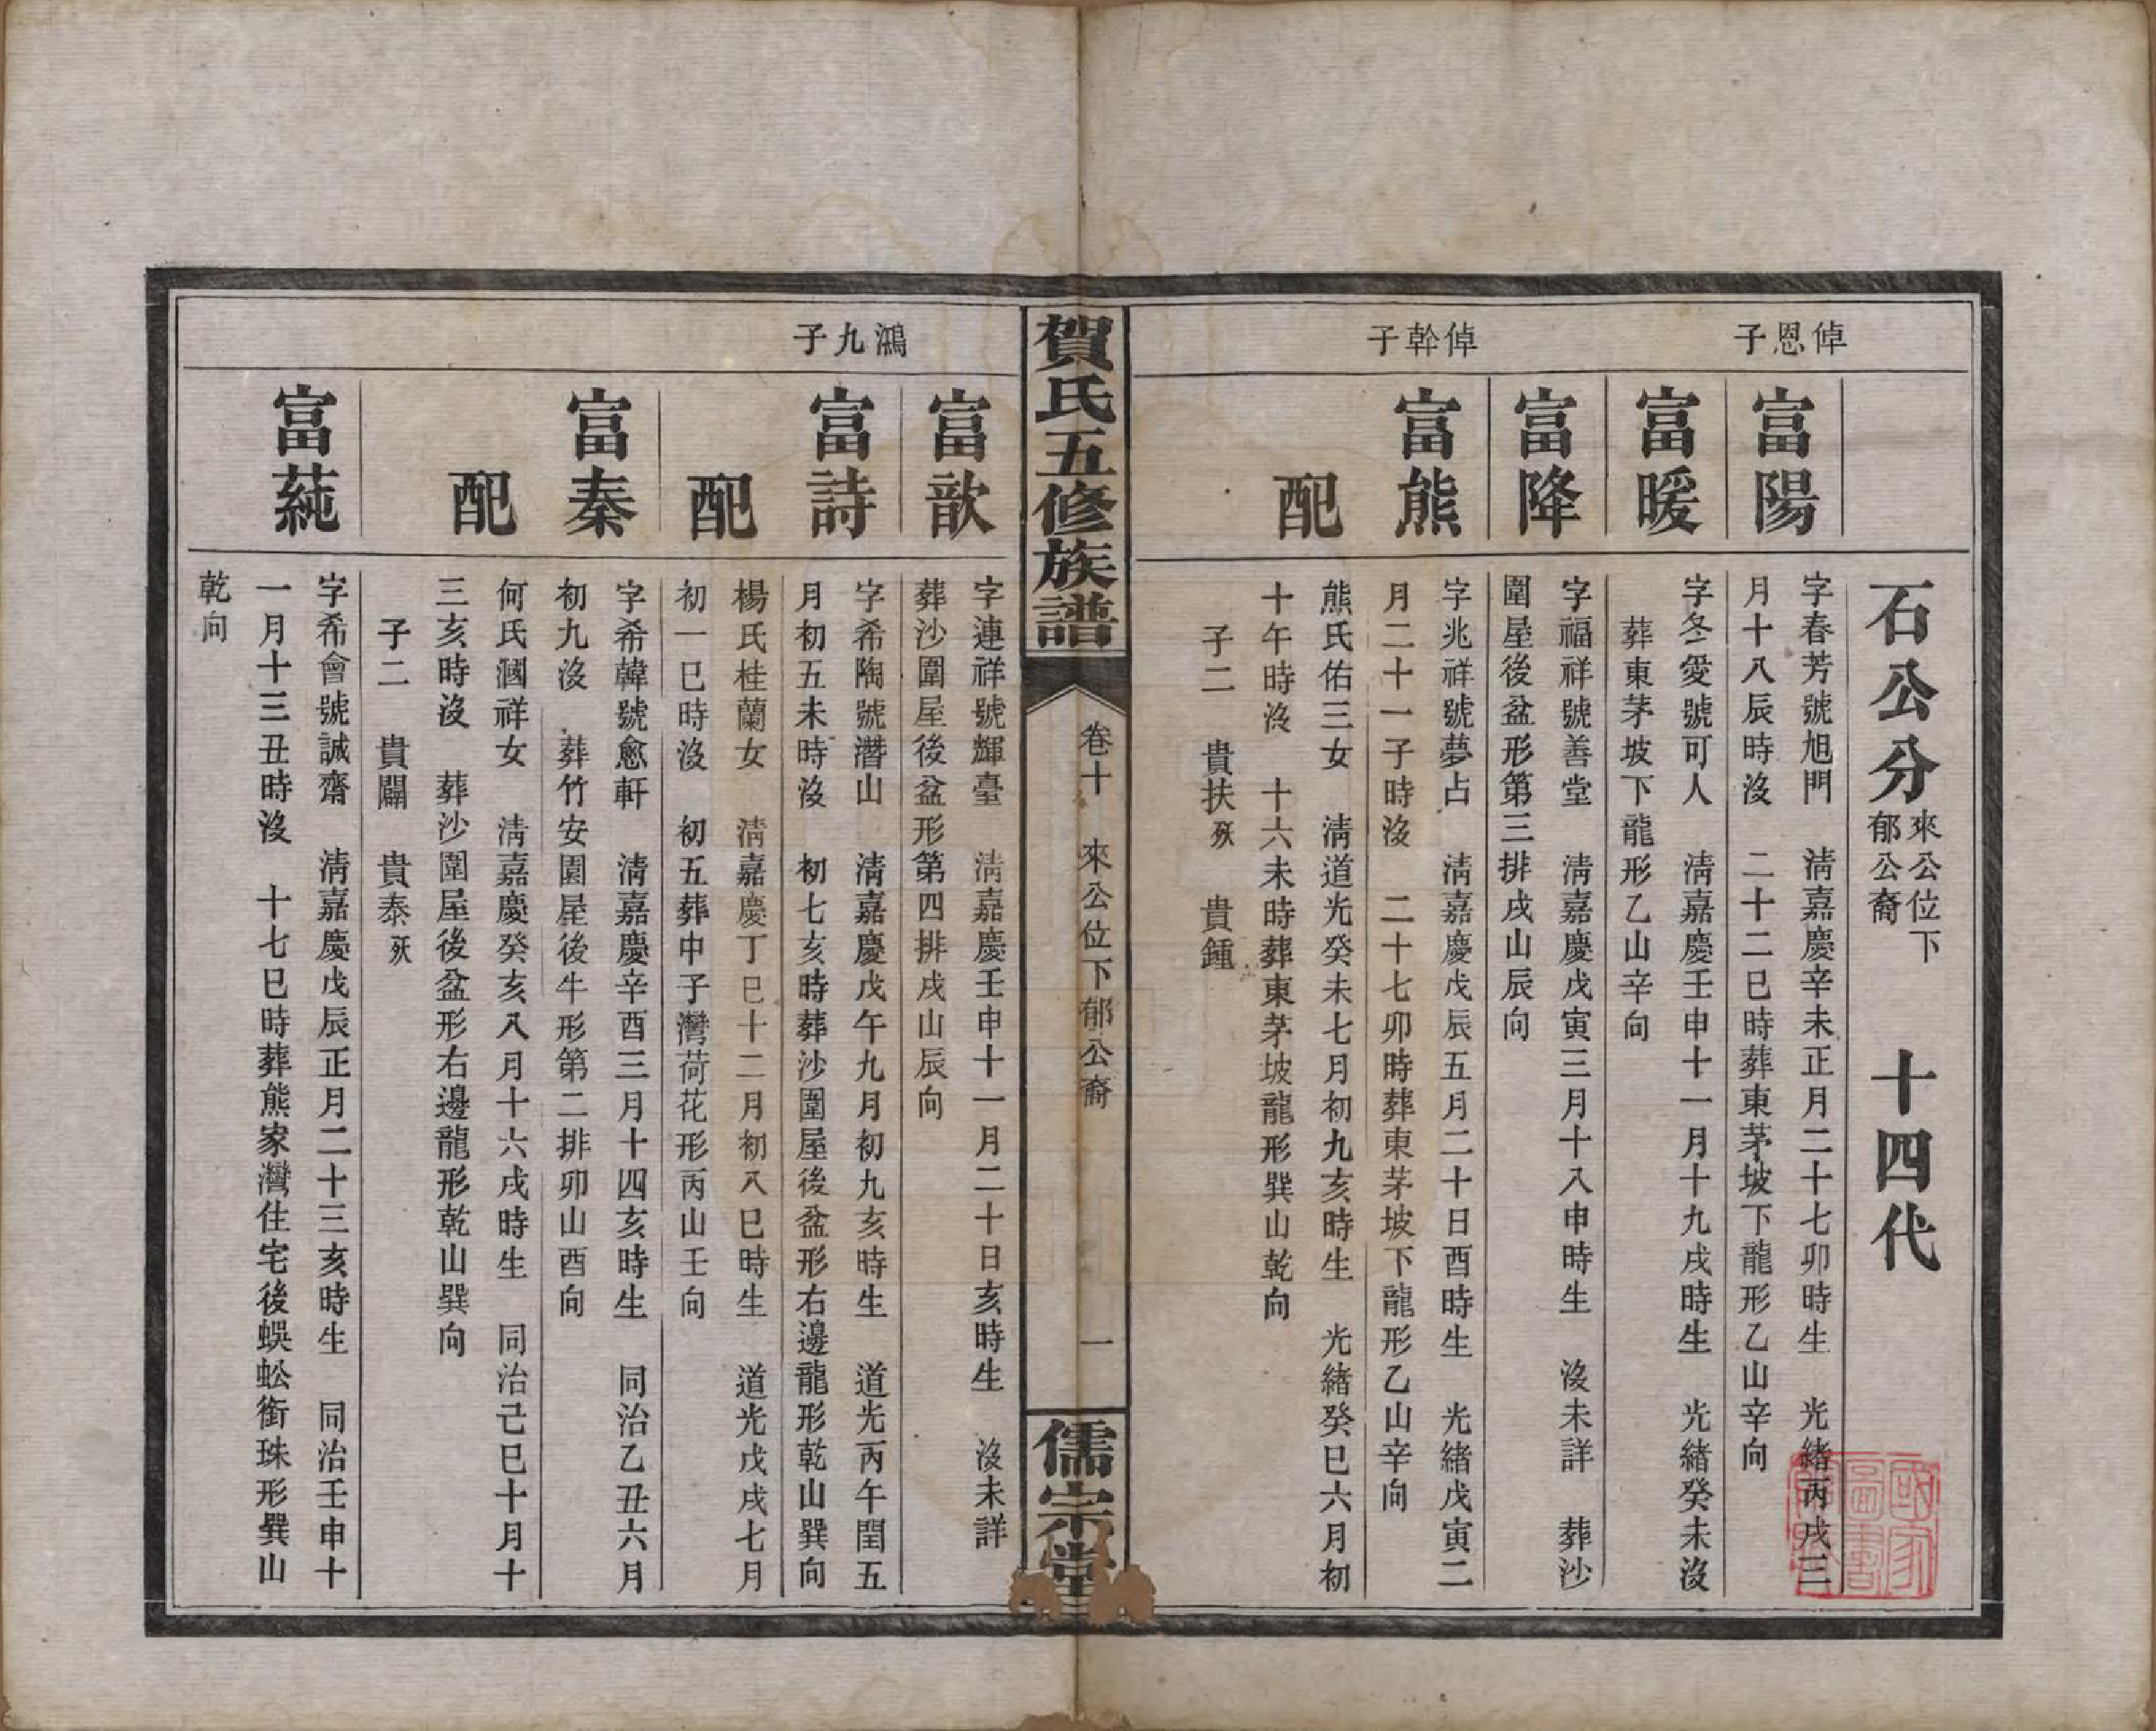 石公分 來公位下 郁公裔 十四代
倬恩子
富陽
字春芳號旭門 淸嘉慶辛未正月二十七卯時生 光緒丙戌三
月十八辰時沒 二十二巳時葬東茅坡下龍形乙山辛向
富暖
字冬愛號可人 淸嘉慶壬申十一月十九戌時生 光緒癸未沒
葬東茅坡下龍形乙山辛向
富降
字福祥號善堂 淸嘉慶戊寅三月十八申時生 沒未詳 葬沙
圍屋後盆形第三排戌山辰向
倬幹子
富熊
字兆祥號夢占 淸嘉慶戊辰五月二十日酉時生 光緒戊寅二
月二十一子時沒 二十七卯時葬東茅坡下龍形乙山辛向
配
熊氏佑三女 淸道光癸未七月初九亥時生 光緒癸巳六月初
十午時沒 十六未時葬東茅坡龍形巽山乾向
子二 貴扶殀 貴鍾
賀氏五修族譜 卷十 來公位下郁公裔 一 儒宗堂
鴻九子
富歆
字連祥號輝臺 淸嘉慶壬申十一月二十日亥時生 沒未詳
葬沙圍屋後盆形第四排戌山辰向
富詩
字希陶號潛山 淸嘉慶戊午九月初九亥時生 道光丙午閏五
月初五未時沒 初七亥時葬沙圍屋後盆形右邊龍形乾山巽向
配
楊氏桂蘭女 淸嘉慶丁巳十二月初八巳時生 道光戊戌七月
初一巳時沒 初五葬中子灣荷花形丙山壬向
富秦
字希韓號愈軒 淸嘉慶辛酉三月十四亥時生 同治乙丑六月
初九沒 葬竹安園屋後牛形第二排卯山酉向
配
何氏漍祥女 淸嘉慶癸亥八月十六戌時生 同治己巳十月十
三亥時沒 葬沙圍屋後盆形右邊龍形乾山巽向
子二 貴闢 貴泰殀
富蒓
字希會號誠齋 淸嘉慶戊辰正月二十三亥時生 同治壬申十
一月十三丑時沒 十七巳時葬熊家灣住宅後蜈蚣銜珠形巽山
乾向